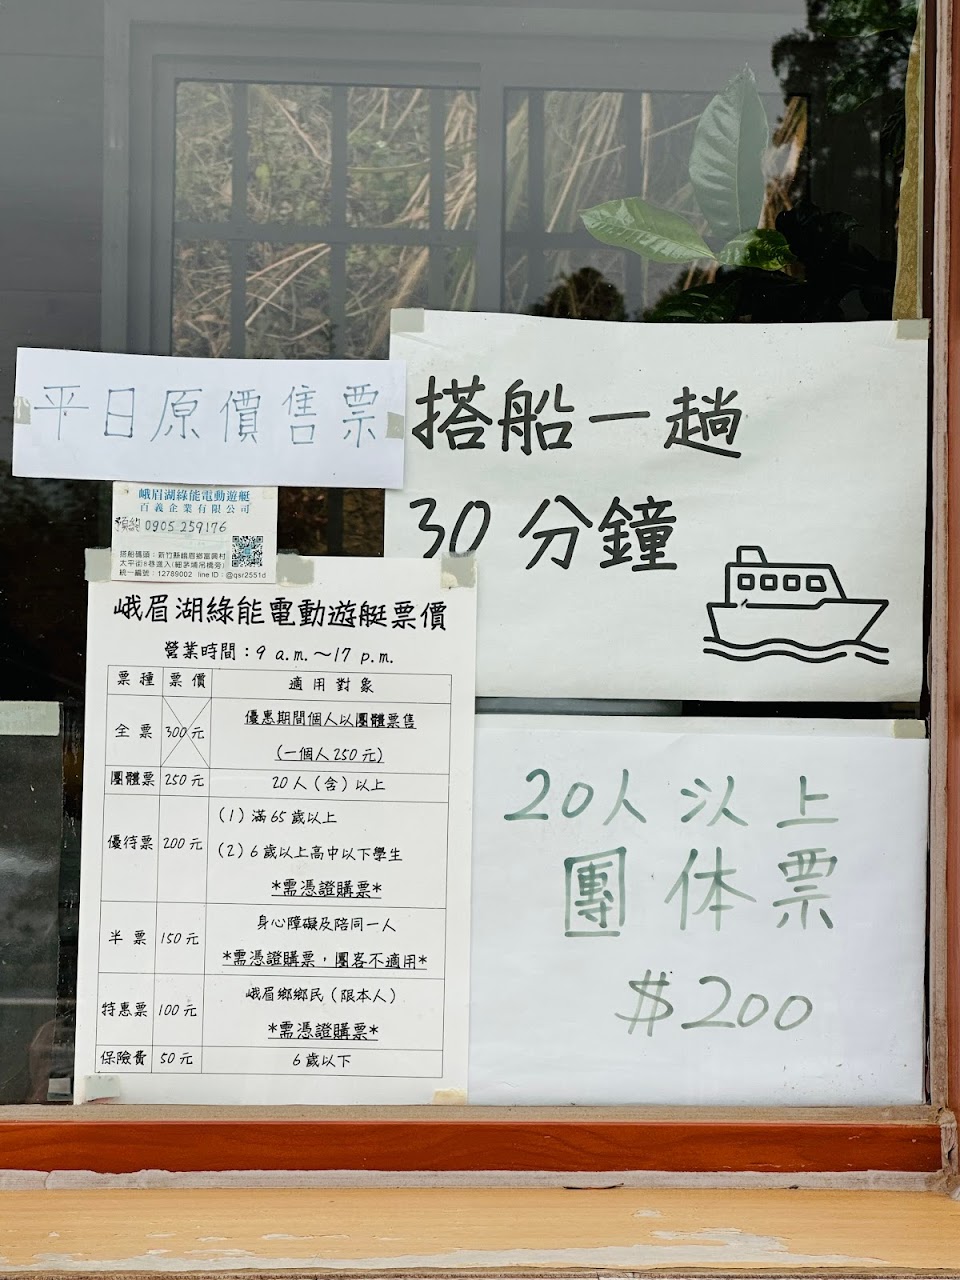 平日原價售票
搭船一趟
30分鐘
峨眉湖綠能電動遊艇
百義企業有限公司
0905 259176
搭船碼頭：新竹縣峨眉鄉富興村
太平街8巷進入(細茅埔吊橋旁)
統一編號：12789002 line ID：@qsr2551d
峨眉湖綠能電動遊艇票價
營業時間：9 a.m.～17 p.m.
票種 票價 適用對象
全票 300元 優惠期間個人以團體票售
(一個人250元)
團體票 250元 20人（含）以上
優待票 200元 (1) 滿65歲以上
(2) 6歲以上高中以下學生
*需憑證購票*
半票 150元 身心障礙及陪同一人
*需憑證購票，團客不適用*
特惠票 100元 峨眉鄉鄉民（限本人）
*需憑證購票*
保險費 50元 6歲以下
20人以上
團体票
$200